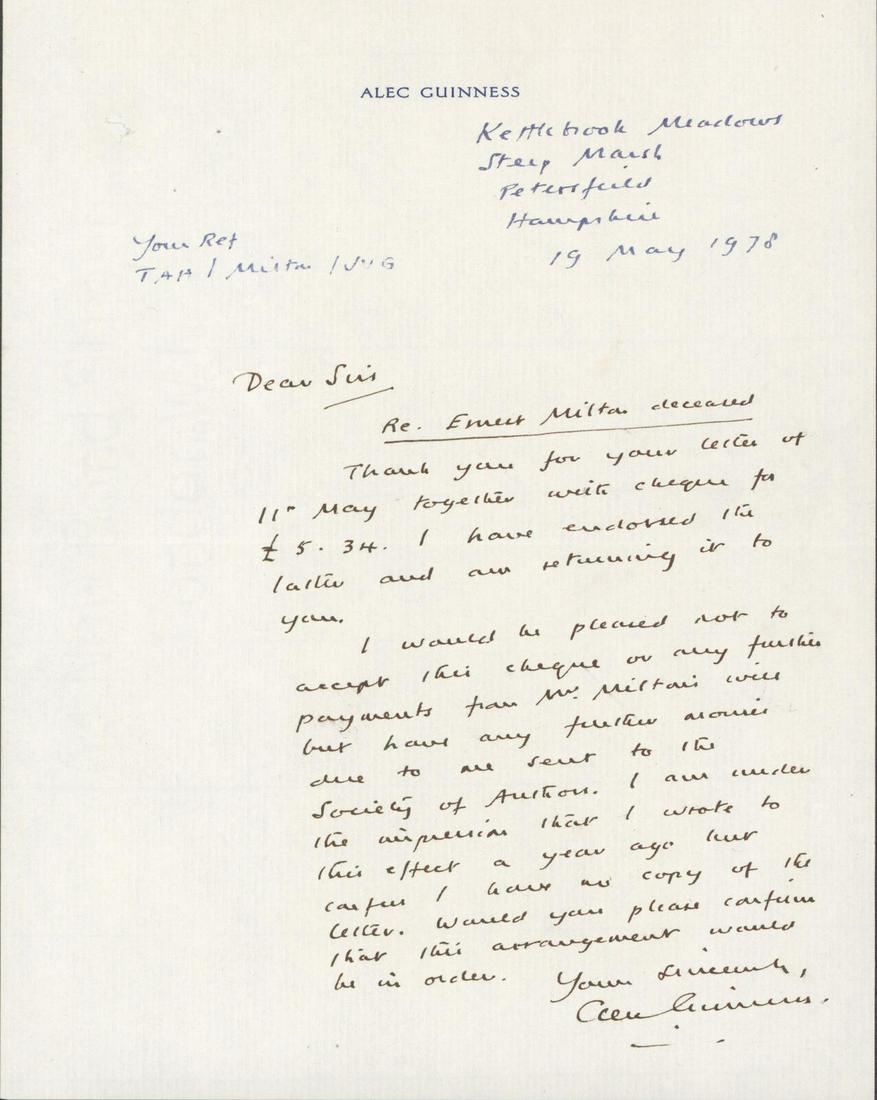 ALEC GUINNESS
Kettlebrook Meadows
Steep Marsh
Petersfield
Hampshire
19 May 1978
Your Ref
TAH / Milton / JVG
Dear Sirs
Re. Ernest Milton deceased
Thank you for your letter of
11th May together with cheque for
£ 5.34. I have endorsed the
latter and am returning it to
you.
I would be pleased not to
accept this cheque or any further
payments from Mr. Milton's will
but have any further monies
due to me sent to the
Society of Authors. I am under
the impression that I wrote to
this effect a year ago but
confess I have no copy of the
letter. Would you please confirm
that this arrangement would
be in order.
Yours sincerely,
Alec Guinness.